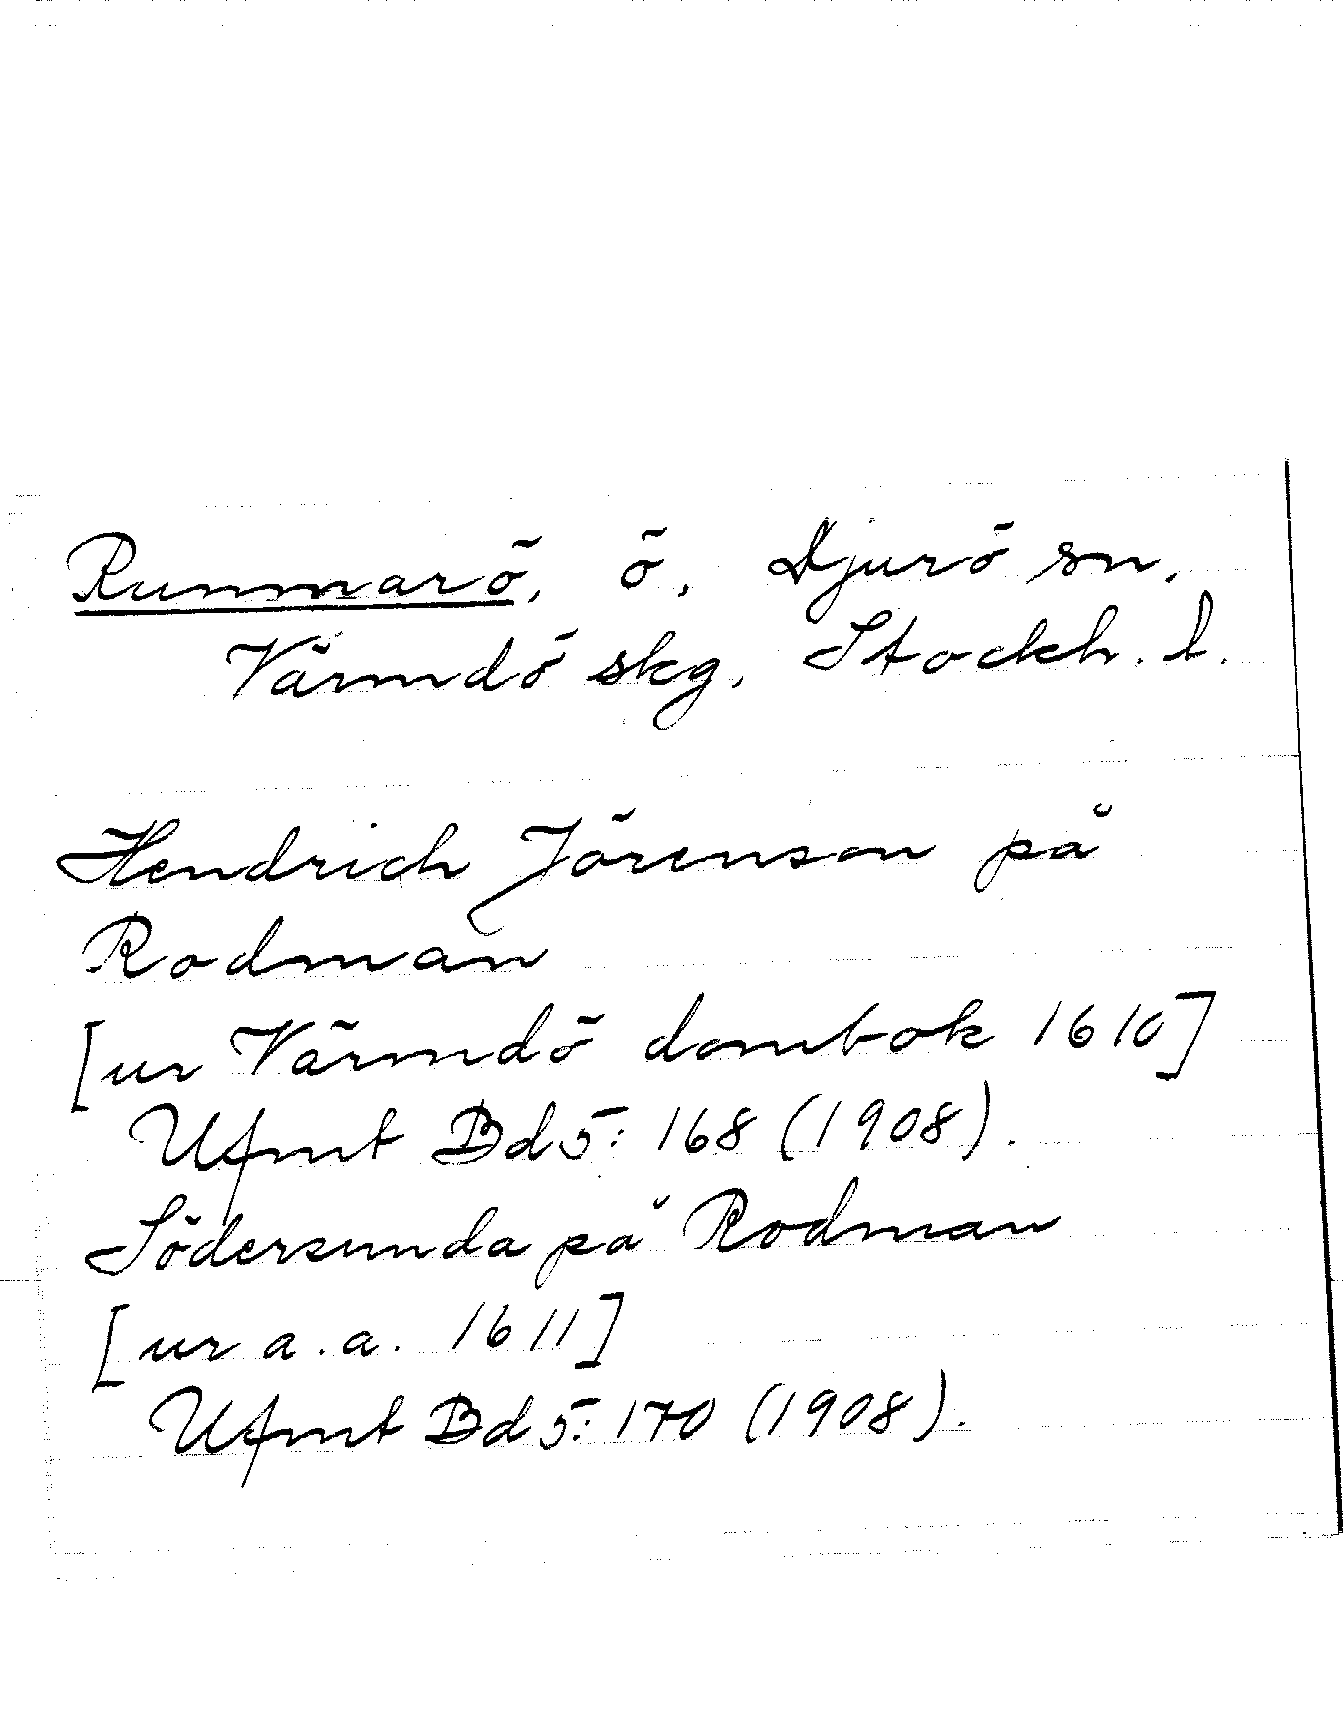 Runmarö, ö, Djurö sn,
Värmdö skg, Stockh. l.
Hendrich Jörenson på
Rodman
[ur Värmdö dombok 1610]
Ufmt Bd 5: 168 (1908).
Södersunda på Rodman
[ur a.a. 1611]
Ufmt Bd 5: 170 (1908).